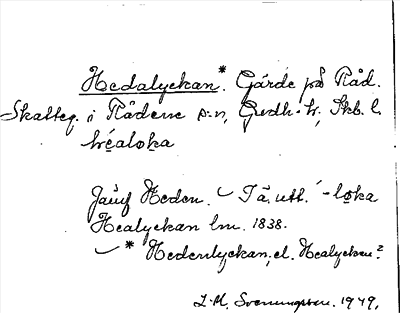 Hedalyckan*. Gärde på Råd.
Skatteg. i Rådene s-n, Gudh. hd, Skb. l.
hé̱aloka
Jämf Heden. – Tä. utt. ´-lo̱ka
Healyckan lm. 1838.
– * Hedenlyckan, el. Healyckan?
L.-M. Svenungsson. 1949.